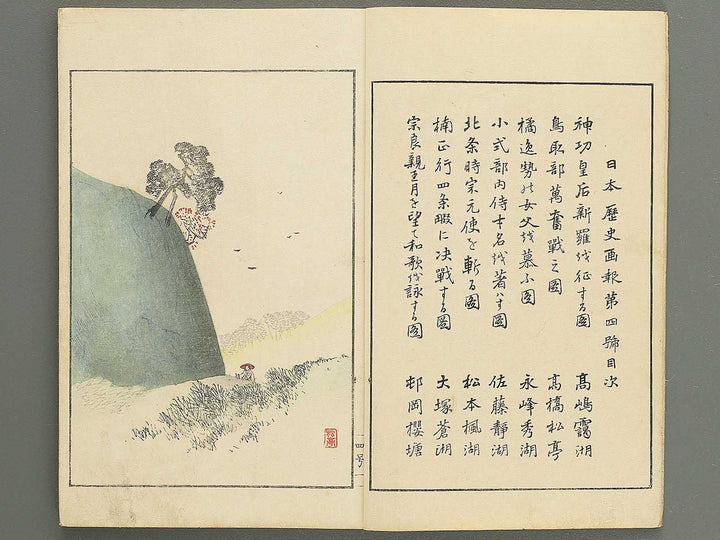 日本歴史画報第四號目次
神功皇后新羅を征する圖 高嶋靄湖
鳥取部萬奮戰之圖 高橋松亭
橘逸勢の女父を慕ふ圖 永峰秀湖
小式部内侍才名を著はす圖 佐藤靜湖
北条時宗元使を斬る圖 松本楓湖
楠正行四条畷に决戰する圖 大塚蒼湖
宗良親王月を望て和歌を詠する圖 邨岡櫻塘
四号一